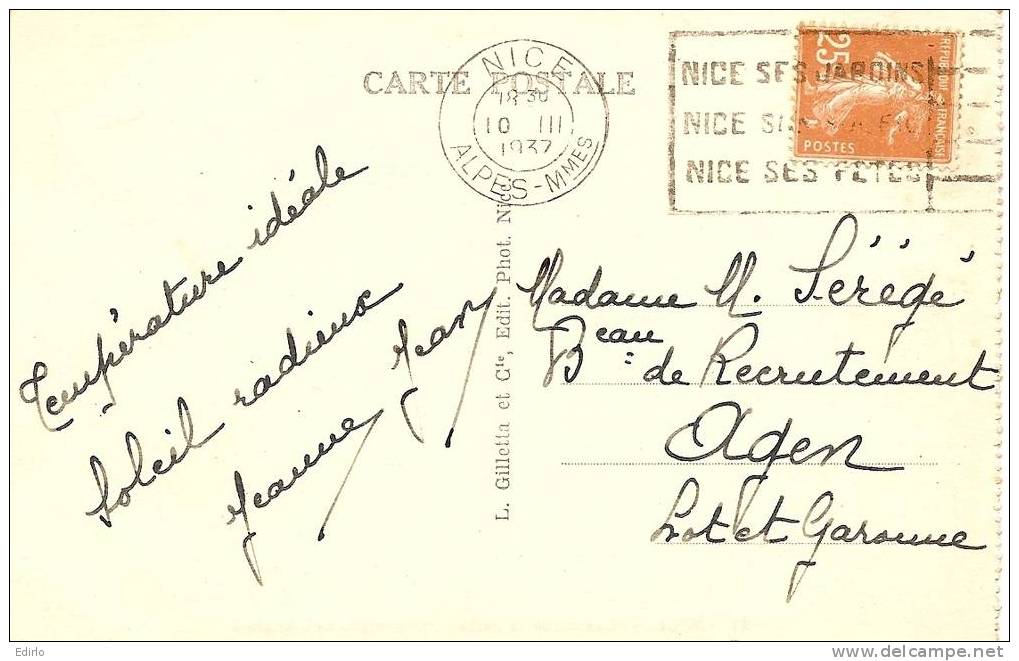 CARTE POSTALE
NICE
18 30
10 III
1937
ALPES-MMES
NICE SES JARDINS
NICE
NICE SES FETES
25c
REPUBLIQUE FRANÇAISE
POSTES
Température idéale
Soleil radieux
Jeanne Jean
L. Gilletta et Cie, Edit. Phot. Nice
Madame M. Sérégé
Beau de Recrutement
Agen
Lot et Garonne
Edirlo
www.delcampe.net